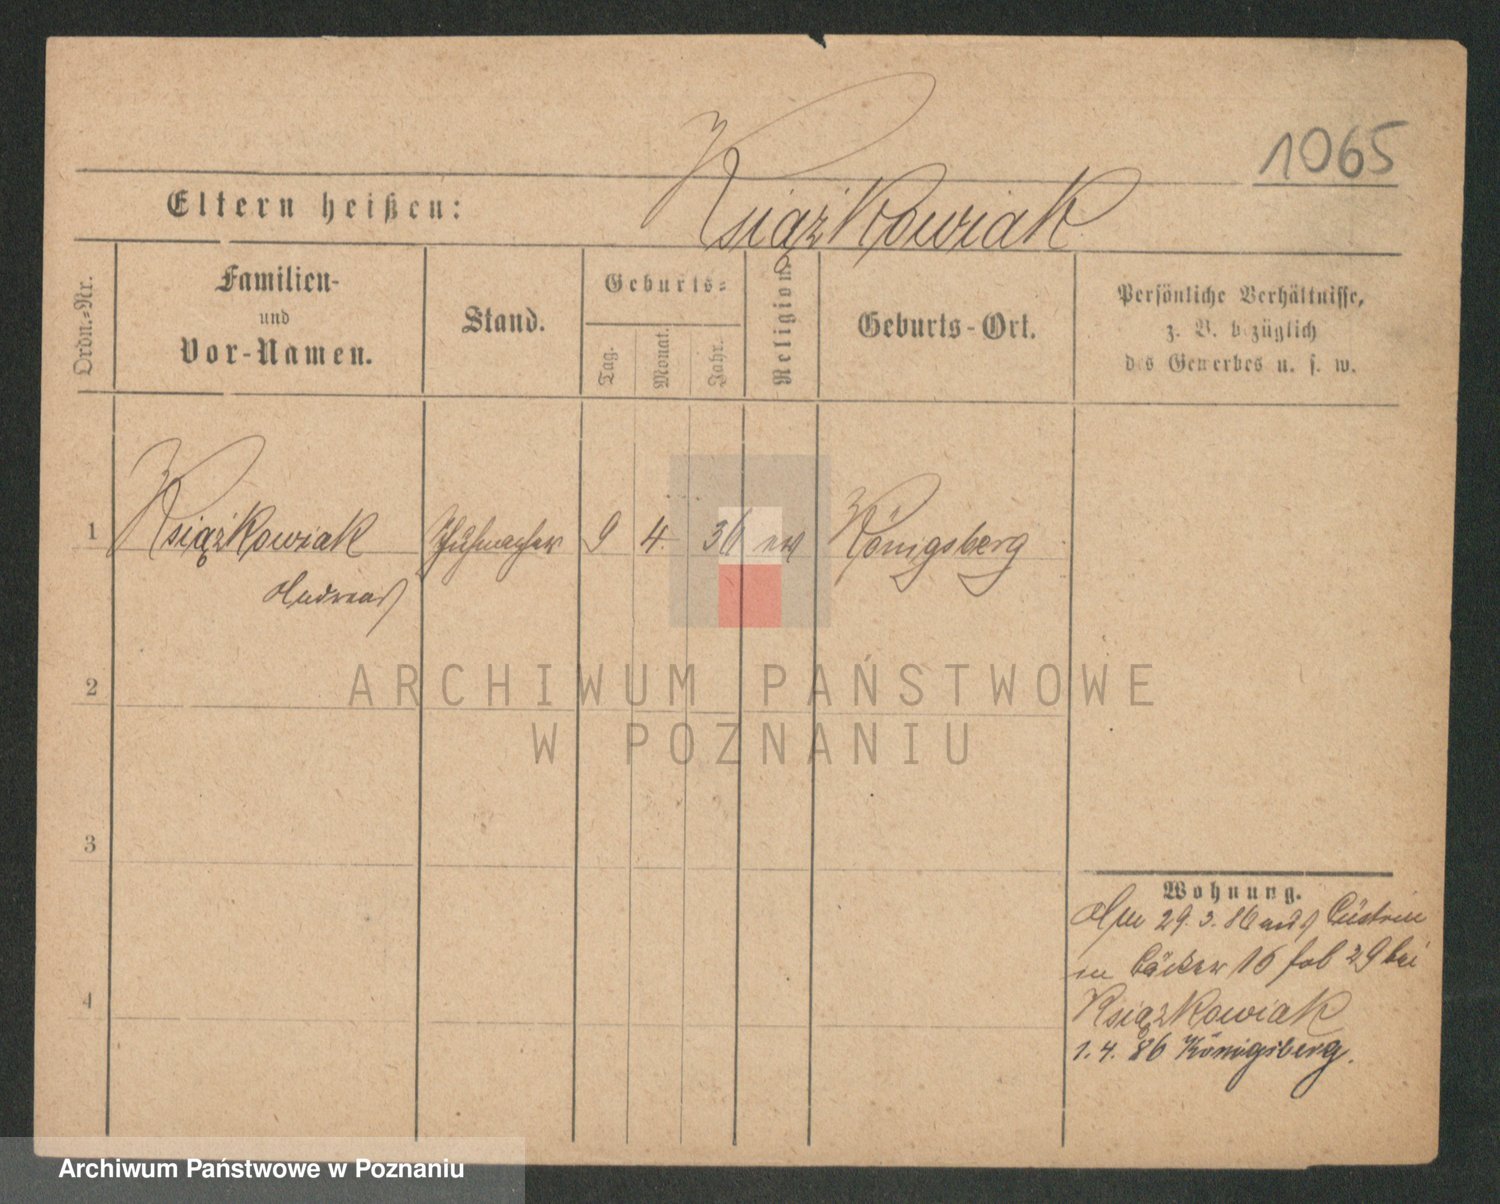 1065
Książkowiak
Eltern heißen:
Ordn.-Nr.
Familien-
und
Vor-Namen.
Stand.
Geburts-
Tag.
Monat.
Jahr.
Religion.
Geburts-Ort.
Persönliche Verhältnisse,
z. B. bezüglich
des Gewerbes u. s. w.
1 Książkowiak Schuhmacher 9 4. 36 ev Königsberg
Andreas
ARCHIWUM PAŃSTWOWE
W POZNANIU
2
3
4
Wohnung.
29. 3. 86 aus Cüstrin
16 29 bei
Książkowiak
1. 4. 86 Königsberg.
Archiwum Państwowe w Poznaniu